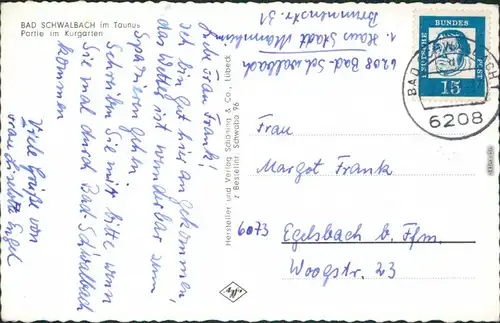 BAD SCHWALBACH im Taunus
Partie im Kurgarten
Brunnenstr. 31
1. Haus Stadt Mannheim
6208 Bad-Schwalbach
Liebe Frau Frank!
Ich bin gut hier angekommen,
das Wetter ist wunderbar zum
Spazieren gehn
Schreiben Sie mir bitte, wenn
Sie mal durch Bad-Schwalbach
kommen
Viele Grüße von
Frau Liselotte Engel
Hersteller und Verlag Schöning & Co., Lübeck
z Besteller Schwaba 96
DEUTSCHE
BUNDES
POST
15
BAD
6208
Frau
Margot Frank
6073 Egelsbach b. Ffm.
Woogstr. 23